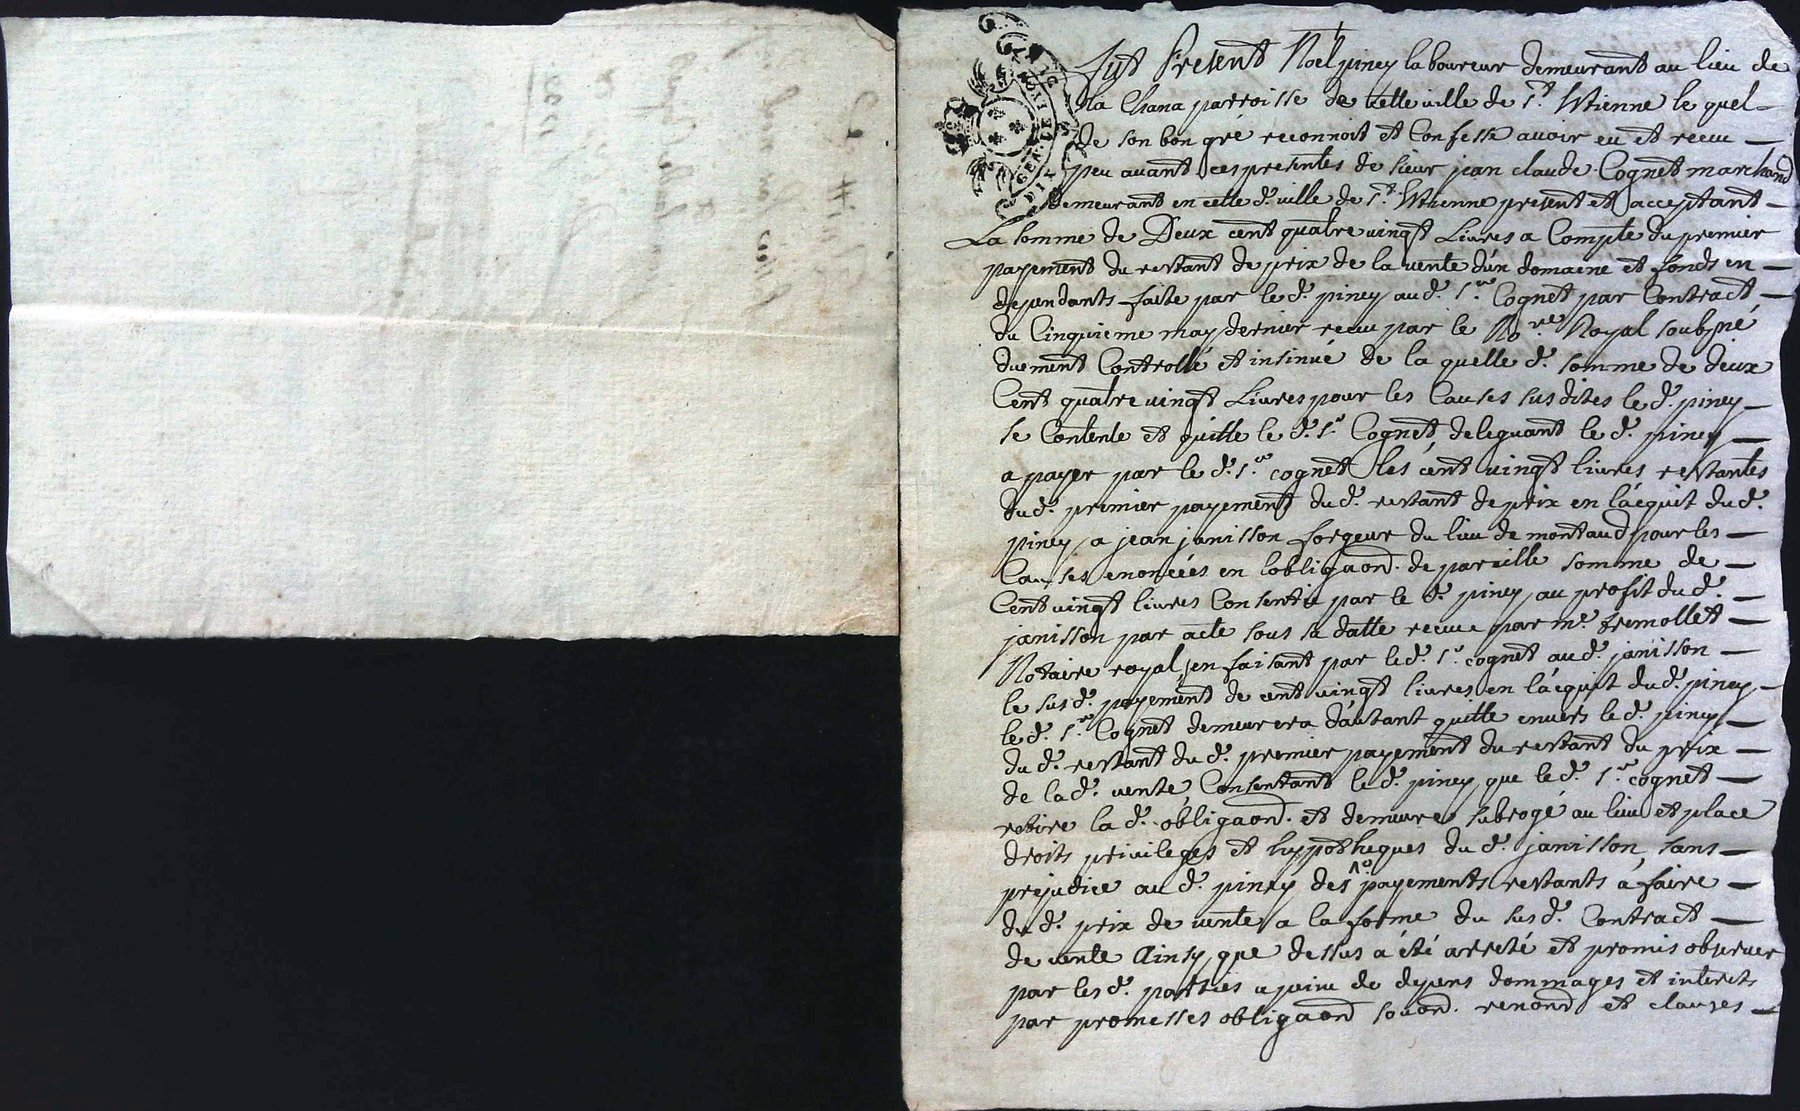 Fut Present Noel piney laboureur demeurant au lieu de
la Chana parroisse de cette ville de St. Etienne le quel
de son bon gré reconnoit et Confesse avoir eu et recu
peu avant ces presentes de sieur jean claude Cognet marchand
demeurant en cette d. ville de St. Etienne present et acceptant
La somme de Deux cent quatre vingt Livres a Compte du premier
payement du restant de prix de la vente d'un domaine et fonds en
dependants faite par le d. piney au d. sr. Cognet par Contract
du Cinquieme may dernier recu par le No.re Royal soubsné
duement Controllé et insinué de la quelle d. somme de deux
Cent quatre vingt Livres pour les Causes susdites le d. piney
se Contente et quitte le d. sr. Cognet deleguant le d. piney
a payer par le d. sr. cognet les cent vingt livres restantes
du d. premier payement du d. restant de prix en l'acquit du d.
piney a jean janisson forgeur du lieu de montaud pour les
Causes enoncées en l'obligaon. de pareille somme de
Cent vingt livres Consentie par le d. piney au profit du d.
janisson par acte sous sa datte recue par me. fremollet
Notaire royal, en faisant par le d. sr. cognet au d. janisson
le susd. payement de cent vingt livres en l'acquit du d. piney
le d. sr. Cognet demeurera d'autant quitte envers le d. piney
du d. restant du d. premier payement du restant du prix
de la d. vente, Consentant le d. piney que le d. sr. cognet
retire la d. obligaon. et demeure subrogé au lieu et place
droits privileges et hyppotheques du d. janisson, sans
prejudice au d. piney des payements restants a faire
du d. prix de vente a la forme du susd. Contract
de vente Ainsy que dessus a été arreté et promis observer
par les d. parties a peine de depens dommages et interets
par promesses obligaon souon. renonon et clauses